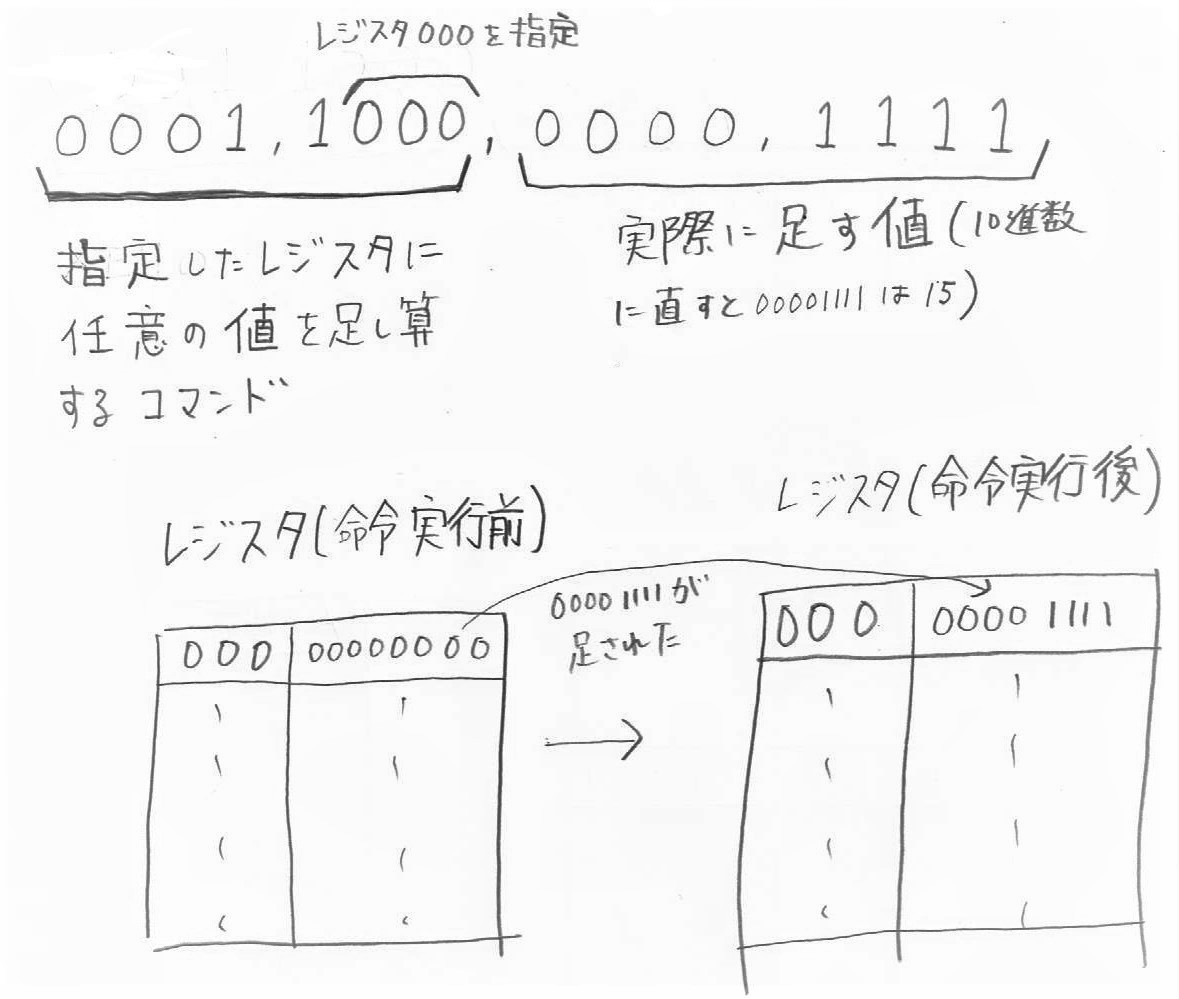 レジスタ000を指定
0001,1000,0000,1111
指定したレジスタに
任意の値を足し算
するコマンド
実際に足す値(10進数
に直すと00001111は15)
レジスタ(命令実行前)
000 00000000
00001111が
足された
レジスタ(命令実行後)
000 00001111